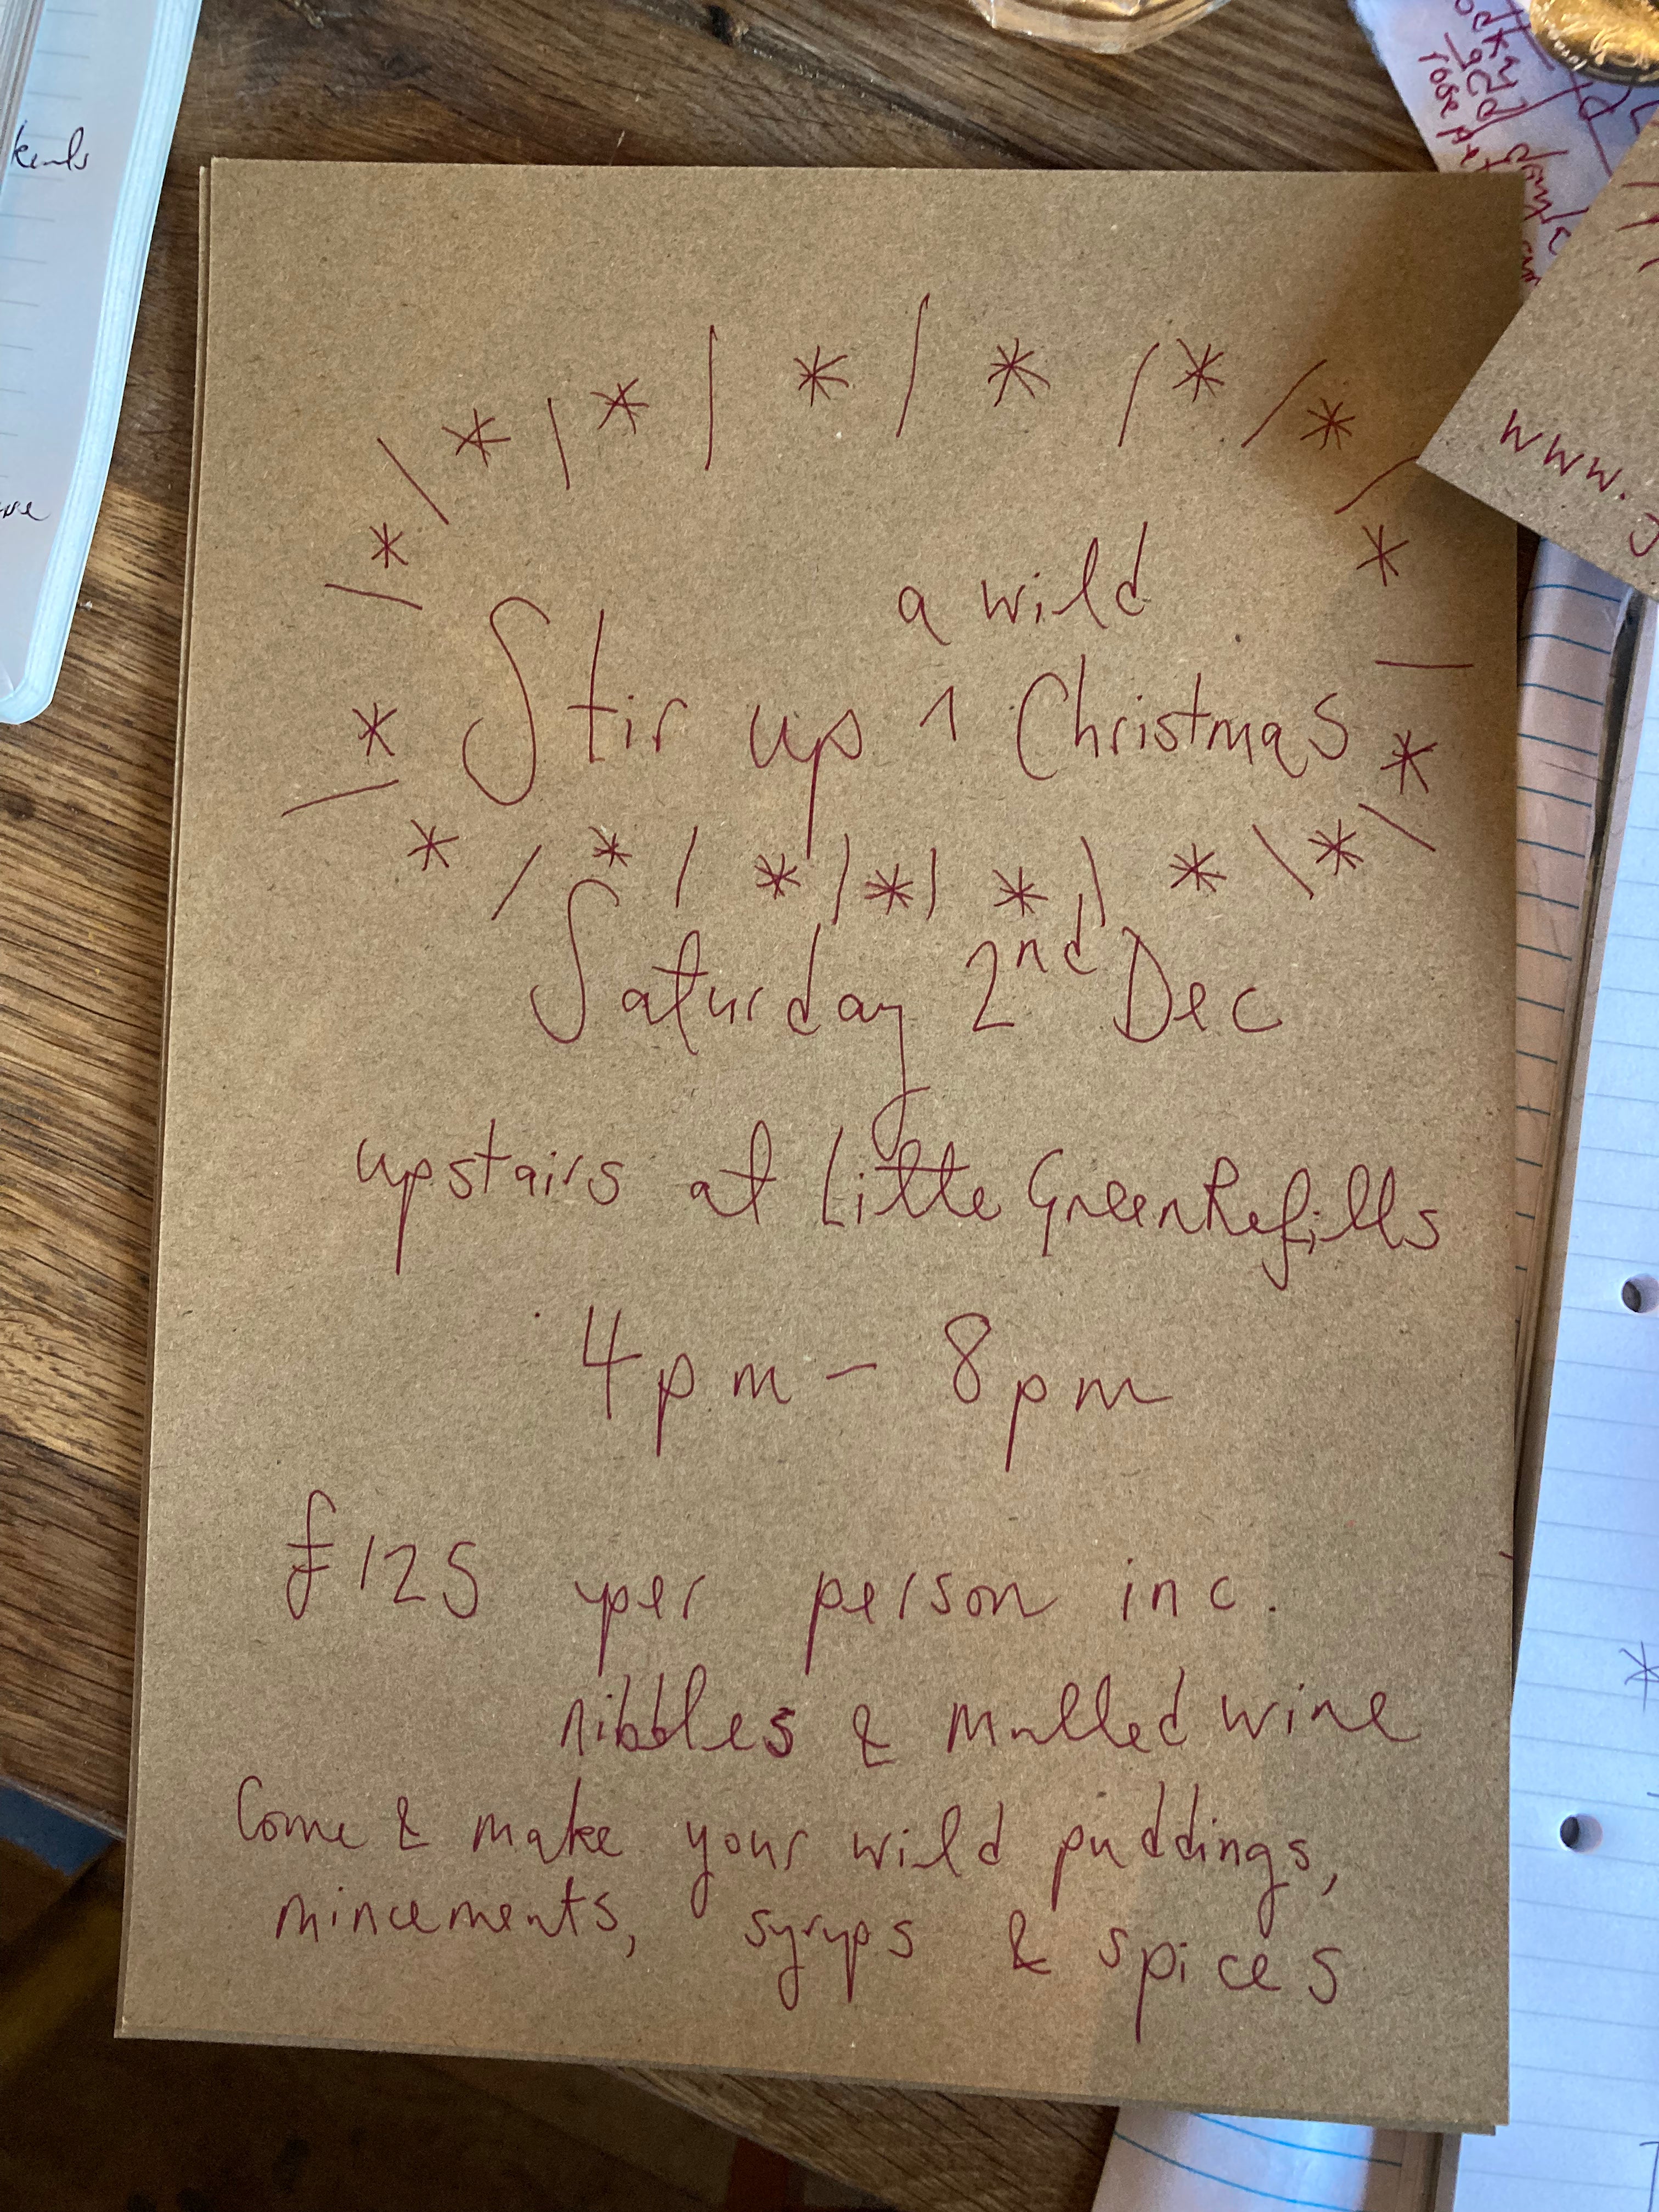 a wild
Stir up ^ Christmas
Saturday 2nd Dec
upstairs at Little GreenRefills
4pm - 8pm
£125 per person inc.
nibbles & mulled wine
Come & make your wild puddings,
mincements, syrups & spices
www.